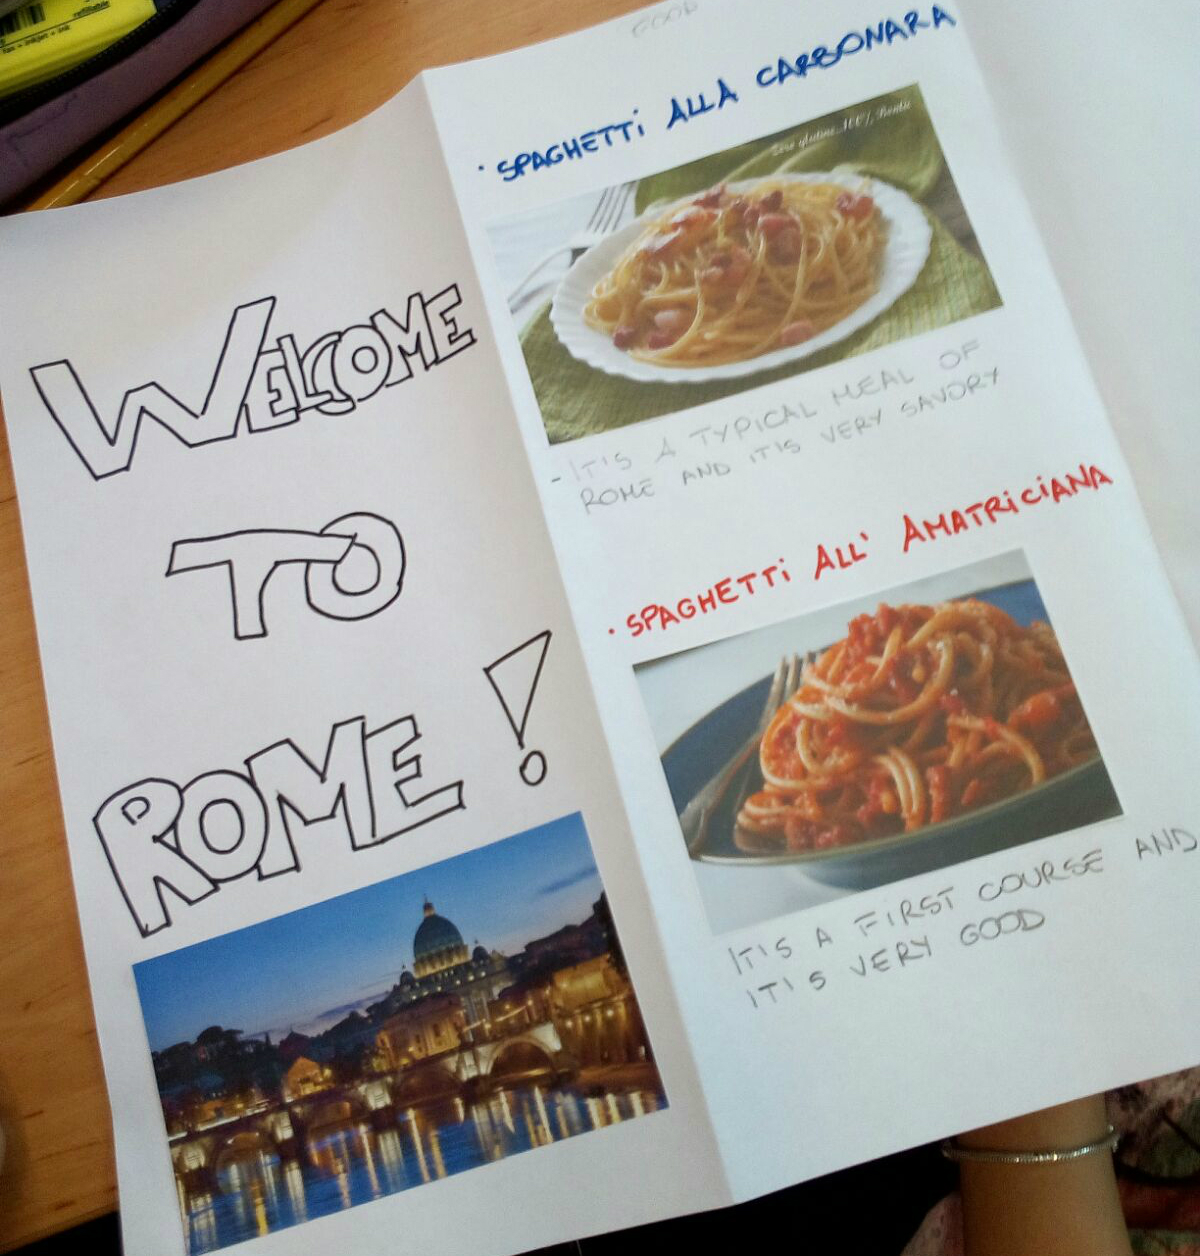 refillable
fax - inkjet - ink
WELCOME
TO
ROME!
GOOD
· SPAGHETTi ALLA CARBONARA
- IT'S A TYPICAL MEAL OF
ROME AND IT'S VERY SAVORY
· SPAGHETTi ALL' AMATRiCiANA
IT'S A FiRST COURSE AND
IT'S VERY GOOD